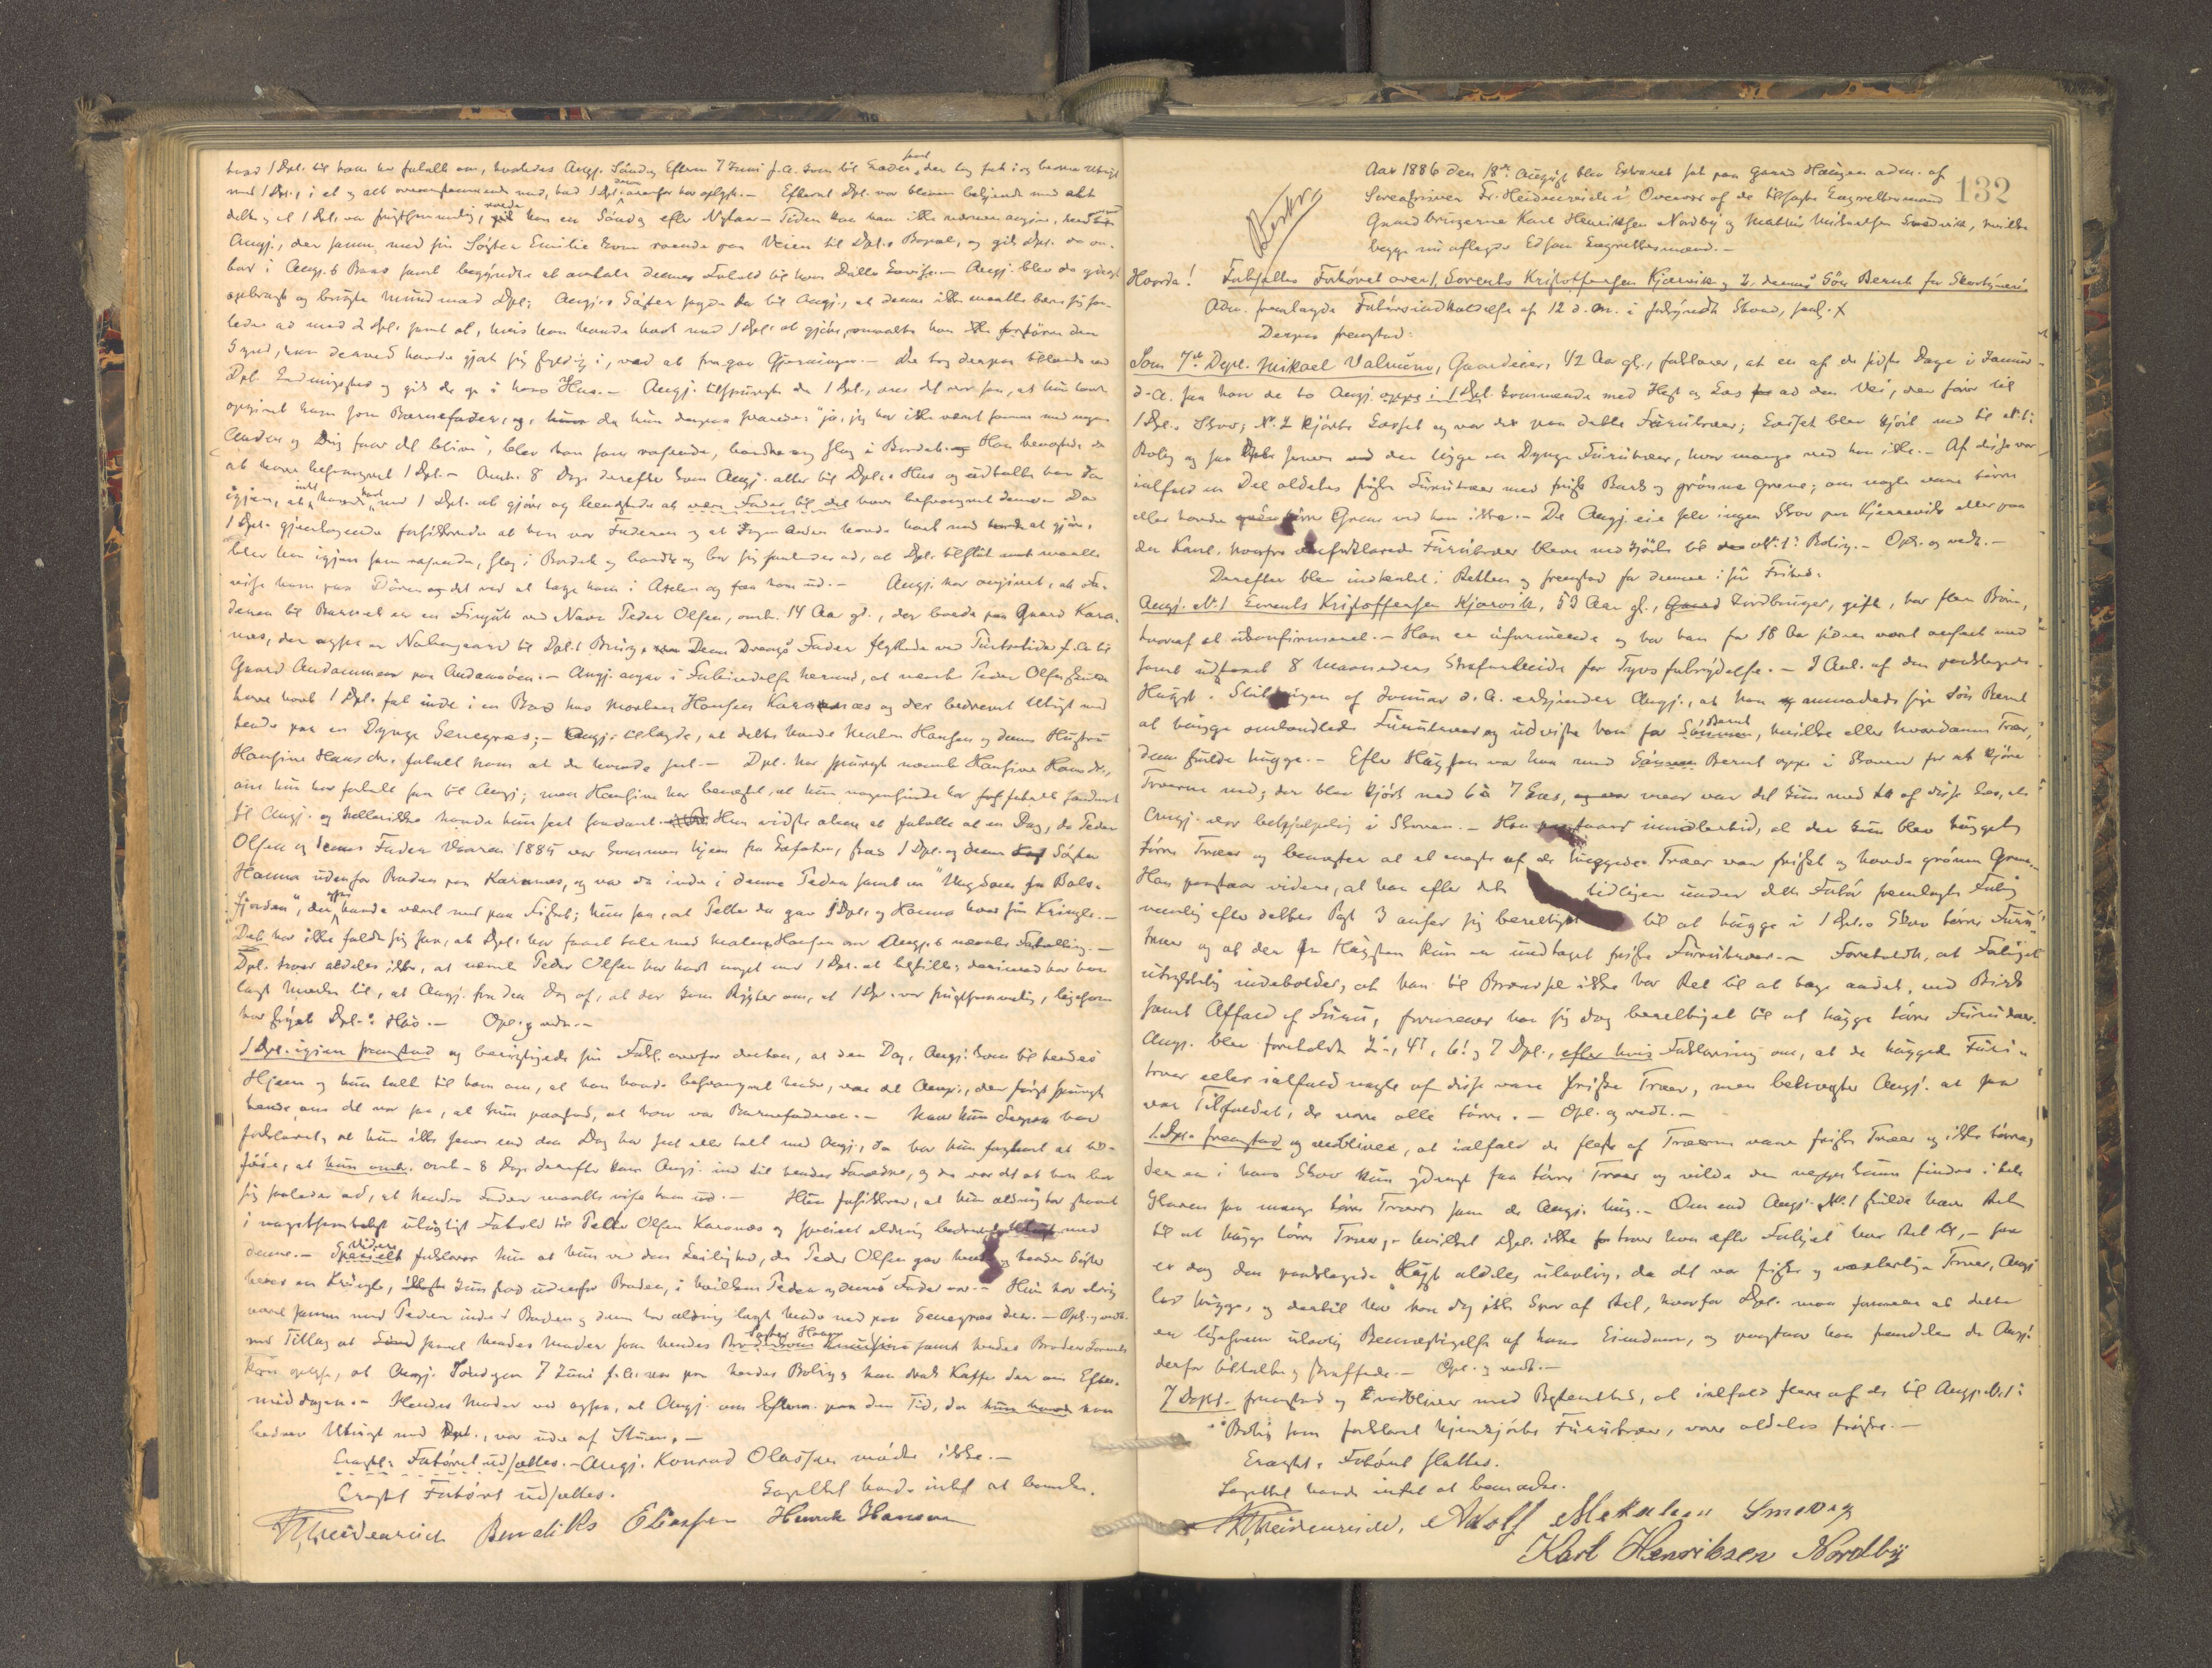 hvad 1 Dpt. til ham har fortalt om, hvorledes Angj. Søndag Efterm 7 Juni f.A. kom til
med 1 Dpt., i et og alt overensstemmende med, hvad 1 Dpt. ovenfor har oplyst. – Efterat Dpt. var bleven bekjendt med at
dette og at 1 Dpt. var frugtsommelig, havde han en Søndag efter Nytaar – Tiden kan han ikke nærmere angive,
Angj., der sammen med sin Søster Emilie kom roende paa Veien til Dpt.s Bopæl, og gik Dpt. da om-
bord i Angj.s Baad samt begyndte at omtale dennes Forhold til hans Datter Lovise. – Angj. blev da ganske
opbragt og brugte Mund mod Dpt; Angj.s Søster sagde da til Angj., at denne ikke maatte bære sig saa-
ledes ad mod Dpt. samt at, hvis han havde havt med 1 Dpt. at gjøre, maatte han ikke forstørre den
Synd, han dermed havde gjort sig skyldig i, ved at fragaa Gjerningen. – De tog derpaa tilsands ved
Dpt. og gik de op i hans Hus. – Angj. tilspurgte da 1 Dpt., om det var saa, at hun havde
opgivet ham som Barnefader, og da hun derpaa svarede: "ja, jeg har ikke været sammen med nogen
Anden og Dig faar det blive", blev han som rasende, bandte og slog i Bordet. Han benegtede da
at have besvangret 1 Dpt. – Omtr. 8 Dage derefter kom Angj. atter til Dpt.s Hus og udtalte han da
igjen, at han intet havde havt med 1 Dpt. at gjøre og benegtede at være Fader til det have besvangret denne. Da
1 Dpt. gjentagende forsikkrede at han var Faderen og at Ingen Anden havde havt med hende at gjøre,
blev han igjen som rasende, slog i Bordet og bandte og bar sig saaledes ad, at Dpt. tilslut maatte
vise ham paa Døren og det ved at tage ham i Axelen og faa ham ud. – Angj. har angivet, at Fa-
deren til Barnet er en Smaagut ved Navn Peder Olsen, omtr. 14 Aar gl., der boede paa Gaard Kara-
næs, der ogsaa er Nabogaard til Dpt.s Brug. Denne Drengs Fader flyttede ved f.A. til
Gaard Andammen paa Andamøen. – Angj. angav i Forbindelse hermed, at nævnte Peder Olsen skulde
have havt 1 Dpt. fat inde i en Baad hos Morten Hansen Karanæs og der bedrevet Utugt med
hende paa en Dynge Senegræs; – Angj. tilføjede, at dette havde Morten Hansen og dennes Hustru
Hansine Hans dtr. fortalt ham at de havde set. – Dpt. har spurgt nævnte Hansine Hans dtr.,
om hun har fortalt saa til Angj; men Hansine har benegtet, at hun nogensinde har fortalt saadant
til Angj. og hellerikke havde hun set saadant. Hun vidste alene at fortælle at en Dag, da Peder
Olsen og dennes Fader Vaaren 1885 var kommen hjem fra Lofoten, stod 1 Dpt. og dennes Søster
Hanna udenfor Baaden paa Karanæs, og var da inde i denne Peder samt en "Ungdom fra Bals-
fjorden", der ogsaa havde været med paa Fisket; hun saa, at Petter da gav 1 Dpt. og Hanna hver sin Kringle. –
Det har ikke faldt sig saa, at Dpt. har faaet tale med Morten Hansen om Angj.s nævnte Fortælling. –
Dpt. troer aldeles ikke, at nævnte Peder Olsen har havt noget med 1 Dpt. at bestille; derimod har han
lagt Mærke til, at Angj. fra den Dag af, at der kom Rygter om, at 1 Dpt. var frugtsommelig, ligesom
har skyet Dpt.s Hus. – Opl. og vedt. –
1 Dpt. igjen fremstod og berigtigede sin Fork. ovenfor derhen, at den Dag, Angj. kom til hendes
Hjem og hun talte til ham om, at han havde besvangret hende, var det Angj., der først spurgte
hende om det var saa, at hun paastod, at han var Barnefaderen. – Naar hun derpaa har
forklaret, at hun ikke senere end den Dag har set eller talt med Angj, da har hun forglemt at til-
føie, at hun omtr. omtr. 8 Dage derefter kom Angj. ind til hendes Forældre, og da var det at han bar
sig saaledes ad, at hendes Fader maatte vise ham ud. – Hun forsikkrer, at hun aldrig har staaet
i nogetsomhelst utugtigt Forhold til Petter Olsen Karanæs og specielt aldrig bedrevet Utugt med
denne. – Videre forklarer hun at hun ved den Leilighed, da Peder Olsen gav hende og hendes Søster
hver en Kringle, kun stod udenfor Baaden, i hvilken Peder og dennes Fader var. – Hun har aldrig
været sammen med Peder inde i Baaden og denne har aldrig lagt hende ned paa Senegræs der. – Opl. og vedt.
med Tillæg at samt hendes Moder som hendes Søster Hanna samt hendes Broder Lorents
kan oplyse, at Angj. Søndagen 7 Juni f.A. var paa hendes Bolig og han drak Kaffe der om Efter-
middagen. – Hendes Moder ved ogsaa, at Angj. om Efterm. paa den Tid, da han
bedrev Utugt med Dpt., var ude af Stuen. –
Eragtet: Forhøret udsættes. – Angj. Konrad Olassen mødte ikke. –
Eragtet Forhøret udsættes. Lagrettet havde intet at bemærke.
Heidenreich Bendiks Eliassen Henrik Hansen
132
Aar 1886 den 18de August blev Extraret sat paa Gaard Haugen adm. af
Sorenskriver Fr. Heidenreich i Overvær af de tilsagte Lagrettesmænd
Gaardbrugerne Karl Henriksen Nordby og Mathis Mikalsen Smedvik, hvilke
begge nu aflagde Ed som Lagrettesmænd. –
Hvorda! Fortsattes Forhøret over 1, Lorents Kristoffersen Kjærvik og 2. dennes Søn Bernt for Skovtyveri
Adm. fremlagde Forhørsindkaldelse af 12 d. M. i forkyndt Stand, saal. X
Derpaa fremstod:
Som 7de Dept. Mikael Valmine, Gaardeier, 1/2 Aar gl., forklarer, at en af de sidste Dage i Januar
d. A. saa han de to Angj. oppe i 1 Dpt. kommende med Hest og Læs ad den Vei, der fører til
1 Dpt.s Skov; N. 2 kjørte Læsset og var der paa dette Furutræer; Læsset blev kjørt ned til N. 1s
Bolig og saa Dpt. senere der ligge en Dynge Furutræer, hvor mange ved han ikke. – Af disse var
ialfald en Del aldeles friske Furutræer med frisk Bark og grønne Grene; om nogle vare tørre
eller havde tørre Grene ved han ikke. – De Angj. eie selv ingen Skov paa Kjærvik eller paa
den Kant, hvorfra omforklarede Furutræer bleve nedkjørte til N. 1s Bolig. – Opl. og vedt. –
Derefter blev indkaldt i Retten og fremstod for denne i sin Frihed:
Angj. N. 1 Lorents Kristoffersen Kjærvik, 53 Aar gl., Jordbruger, gift, har flere Børn,
hvoraf et ukonfirmeret. – Han er uformuende og har han for 18 Aar siden været anseet med
samt udstaaet 8 Maaneders Strafarbeide for Tyvsforbrydelse. – I Anl. af den paaklagede
Hugst i Slutningen af Januar d. A. erkjender Angj., at han anmodede sin Søn Bernt
at hugge omhandlede Furutræer og udviste han for Sønnen Bernt, hvilke eller hvordanne Træer,
denne skulde hugge. – Efter Hugsten var han med Sønnen Bernt oppe i Skoven for at kjøre
Træerne ned; der blev kjørt ned 6 à 7 Læs, var det kun med to af disse Læs, at
Angj. var behjælpelig i Skoven. – Han paastaar imidlertid, at der kun blev hugget
tørre Træer og benegter at et eneste af de huggede Træer var friskt og havde grønne Grene.
Han paastaar videre, at han efter det tidligere under dette Forhør fremlagte Forlig
nemlig efter dettes Post 3 anser sig berettiget til at hugge i 1 Dpt.s Skov tørre Furu-
træer og at der fra Hugsten kun er undtaget friske Furutræer. – Foreholdt, at Forliget
udtrykkelig indeholder, at han til Brændsel ikke har Ret til at tage andet, end Birk
samt Affald af Furu, formener han sig dog berettiget til at hugge tørre Furutræer.
Angj. blev foreholdt 2de, 4de, 6te og 7 Dpt., efter hvis Forklaring om, at de huggede Furu-
træer eller ialfald nogle af disse vare friske Træer, men benegter Angj. at saa
var Tilfældet, de vare alle tørre. – Opl. og vedt. –
1. Dpt. fremstod og vedbliver, at ialfald de fleste af Træerne vare friske Træer og ikke tørre,
der er i hans Skov kun yderst faa tørre Træer og vilde der neppe kunne findes i hele
Skoven saa mange tørre Træer som de Angj. hug. – Om end Angj. N. 1 skulde have Ret
til at hugge tørre Træer, – hvilket Dpt. ikke troer han efter Forliget har Ret til, – saa
er dog den paaklagede Hugst aldeles ulovlig, da det var friske og voxterlige Træer, Angj.
lod hugge, og dertil har han dog ikke Spor af Ret, hvorfor Dpt. maa formene at dette
er ligefrem ulovlig Bemægtigelse af hans Eiendom, og paastaar han fremdeles de Angj.
derfor tiltalte og straffede. – Opl. og vedt. –
7 Dept. fremstod og vedbliver med Bestemthed, at ialfald flere af de til Angj. N. 1s
Bolig som forklaret hjemkjørte Furutræer, vare aldeles friske. –
Eragtet: Forhøret sluttes.
Lagrettet havde intet at bemærke.
Heidenreich. Adolf Mekalsen Smevig
Karl Henriksen Nordby